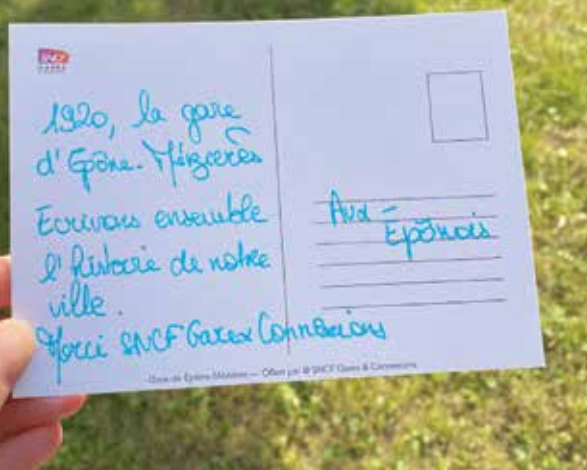 SNCF
1920, la gare
d'Epône-Mézières
Ecrivons ensemble
l'histoire de notre
ville.
Merci SNCF Gares & Connexions
Aux
Epônois
Gare de Epône Mézières — Offert par @SNCF Gares & Connexions